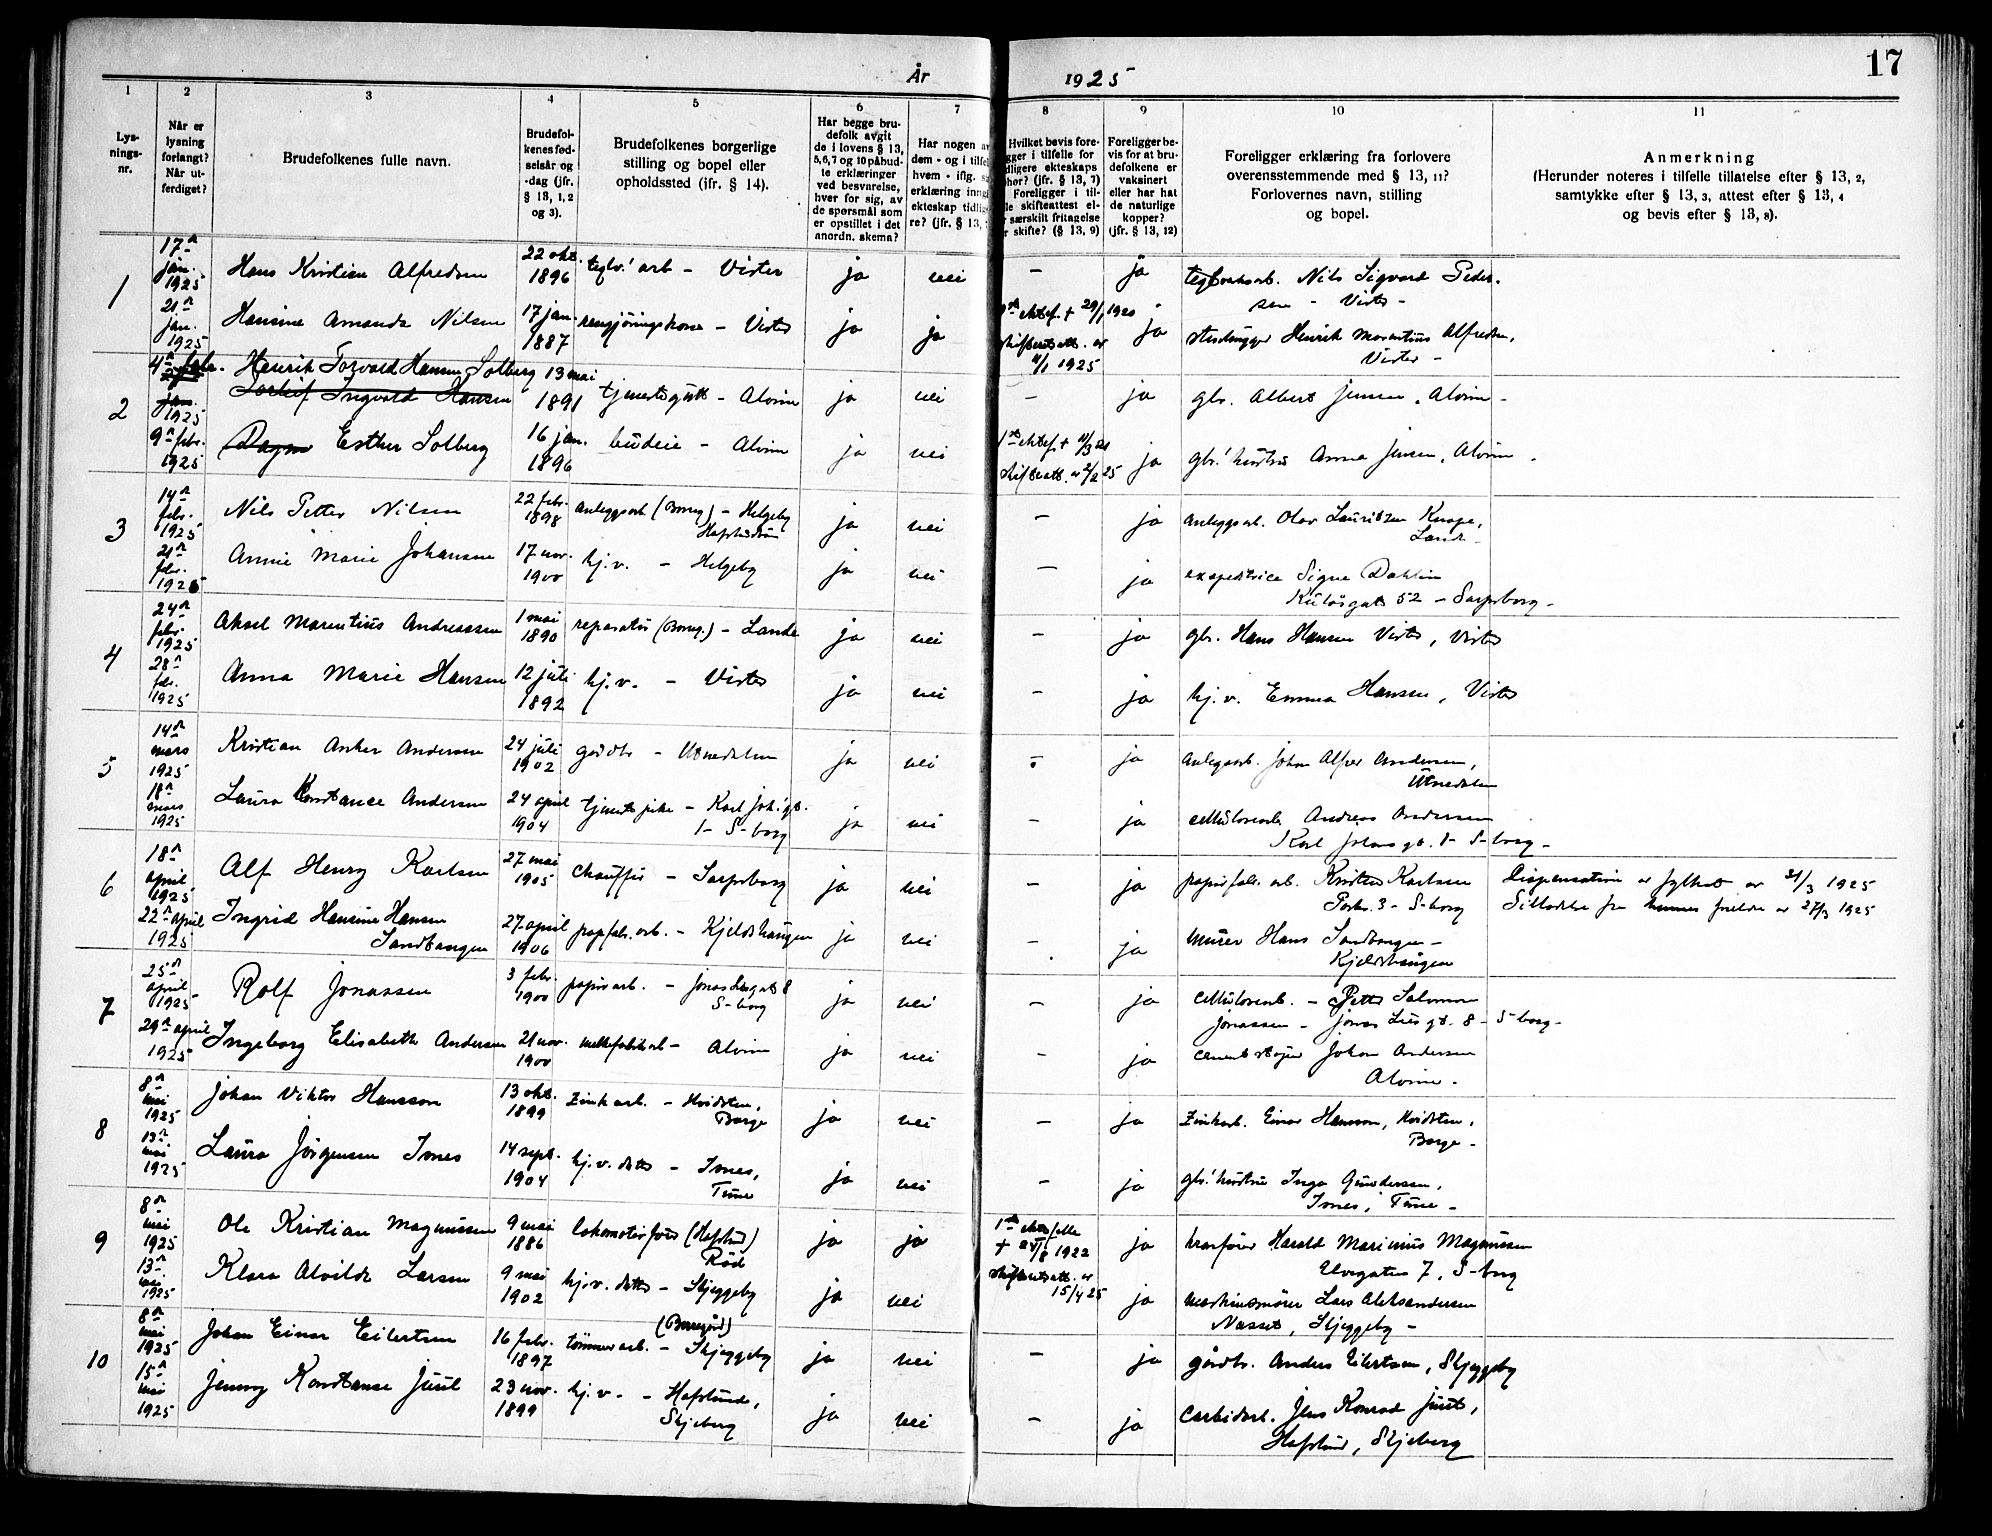 17
År
1925
1
2
3
4
5
6
7
8
9
10
11
Lys-
nings-
nr.
Når er
lysning
forlangt?
Når ut-
ferdiget?
Brudefolkenes fulle navn.
Brudefol-
kenes fød-
selsår og
-dag (jfr.
§ 13, 1, 2
og 3).
Brudefolkenes borgerlige
stilling og bopel eller
opholdssted (ifr. § 14).
Har begge bru-
defolk avgit
de i lovens § 13,
5,6,7 og 10 påbud-
te erklæringer
ved besvarelse,
hver for sig, av
de spørsmål som
er opstillet i det
anordn. skema?
Har nogen av
dem - og i tilfel
hvem - iflg.
erklæring inng
ekteskap tidlig
re? (jfr. § 13,
Hvilket bevis fore-
gger i tilfelle for
dligere ekteskaps
phør? (jfr. § 13, 7)
Foreligger i til-
le skifteattest el-
særskilt fritagelse
r skifte? (§ 13, 9)
Foreligger be-
vis for at bru-
defolkene er
vaksinert
eller har hat
de naturlige
kopper?
(jfr. § 13, 12)
Foreligger erklæring fra forlovere
overensstemmende med § 13, 11?
Forlovernes navn, stilling
og bopel.
Anmerkning
(Herunder noteres i tilfelle tillatelse efter § 13, 2,
samtykke efter § 13, 3, attest efter § 13, 4
og bevis efter § 13, 8).
1
17de
jan.
1925
Hans Kristian Alfredsen
22 okt.
1896
teglv. arb - Vister
ja
nei
-
ja
teglverksarb. Nils Sigvard Peder-
sen - Vister -
21de
jan.
1925
Hansine Amanda Nilsen
17 jan.
1887
rengjøringskone - Vister
ja
ja
ektef. + 29/1 1920
skifteatt. av
1925
ja
stenhugger Henrik Marentius Alfredsen,
Vister -
2
4de febr.
jan.
1925
Henrik Torvald Hansen Solberg
Ingvald Hansen
13 mai
1891
tjenestegutt - Alvim
ja
nei
-
ja
gbr. Albert Jensen, Alvim -
9de febr.
1925
Dagny Esther Solberg
16 jan.
1896
budeie - Alvim
ja
nei
1ste ektef. +
skifteatt. av 2/2 25
ja
gbr.' hustru Anna Jensen, Alvim.
3
14de
febr.
1925
Nils Petter Nilsen
22 febr.
1898
anleggsarb (Borreg) - Helgeby
ja
nei
-
ja
anleggsarb. Olav Lauritzen Knape,
Lande -
21de
febr.
1925
Annie Marie Johansen
17 nov.
1900
hj.v. - Helgeby
ja
nei
-
ja
ekspeditrice Signe Dahlin
Kulåsgate 52 - Sarpsborg -
4
24de
febr.
1925
Aksel Marentius Andreassen
1 mai
1890
reparatør (Borreg.) - Lande
ja
nei
-
ja
gbr. Hans Hansen Vister, Vister
28de
febr.
1925
Anna Marie Hansen
12 juli
1892
hj.v. - Vister
ja
nei
-
ja
hj.v. Emma Hansen, Vister
5
14de
mars
1925
Kristian Anker Andersen
24 juli
1902
gårdbr - Utnedalen
ja
nei
-
ja
anleggsarb. Johan Alfred Andersen,
Utnedalen
18de
mars
1925
Laura Konstance Andersen
24 april
1904
tjenestepike - Karl Joh.'gt.
1 - S-borg
ja
nei
-
ja
cellulosearb. Andreas Andersen
Karl Johans gt. 1 - S-borg -
6
18de
april
1925
Alf Henry Karlsen
27 mai
1905
chauffør - Sarpsborg
ja
nei
-
ja
papirfabr. arb. Kristen Karlsen
Postv. 3 - S-borg
Dispensation av fylket av 31/3 1925
Tilladelse fra hennes foreldre av 27/3 1925
22de april
1925
Ingrid Hansine Hansen
Sandtangen
27 april
1906
papfabr. arb. - Kjeldshaugen
ja
nei
-
ja
murer Hans Sandtangen -
Kjeldshaugen
7
25de
april
1925
Rolf Jonassen
3 febr.
1900
papirarb. - Jonas Liesgate 8
S-borg
ja
nei
-
ja
cellulosearb. - Petter Salomon
Jonassen - Jonas Lies gt. 8 - S-borg -
29de april
1925
Ingeborg Elisabeth Andersen
21 nov.
1900
melkefabrikarb - Alvim
ja
nei
-
ja
cementstøper Johan Andersen
Alvim -
8
8de
mai
1925
Johan Viktor Hansson
13 okt.
1899
zinkarb. - Hvidsten,
Borge
ja
nei
-
ja
Zinkarb. Einar Hansson, Hvidsten,
Borge -
13de
mai
1925
Laura Jørgensen Isnes
14 sept.
1904
hj.v. datter - Isnes,
Tune
ja
nei
-
ja
gbr.' hustru Inga Gundersen,
Isnes, Tune -
9
8de
mai
1925
Ole Kristian Magnussen
9 mai
1886
lokomotivfører (Hafslund)
Röd
ja
ja
1ste ektefelle
+ 1922
skifteattest av
15/4 25
ja
kranfører Harald Marinius Magnussen
Elvegaten 7, S-borg
13de
mai
1925
Klara Alvilde Larsen
9 mai
1902
hj.v. datter - Skjeggeby
ja
nei
ja
maskinsmører Lars Aleksandersen
Næsset, Skjeggeby -
10
8de
mai
1925
Johan Einar Eilertsen
16 febr.
1897
(Borregård)
tømmerarb. - Skjeggeby
ja
nei
-
ja
gårdbr. Anders Eilertsen, Skjeggeby
15de
mai
1925
Jenny Konstanse Juul
23 nov.
1899
hj.v. - Hafslund,
Skjeberg
ja
nei
-
ja
Carbidarb. Jens Konrad Juul,
Hafslund, Skjeberg